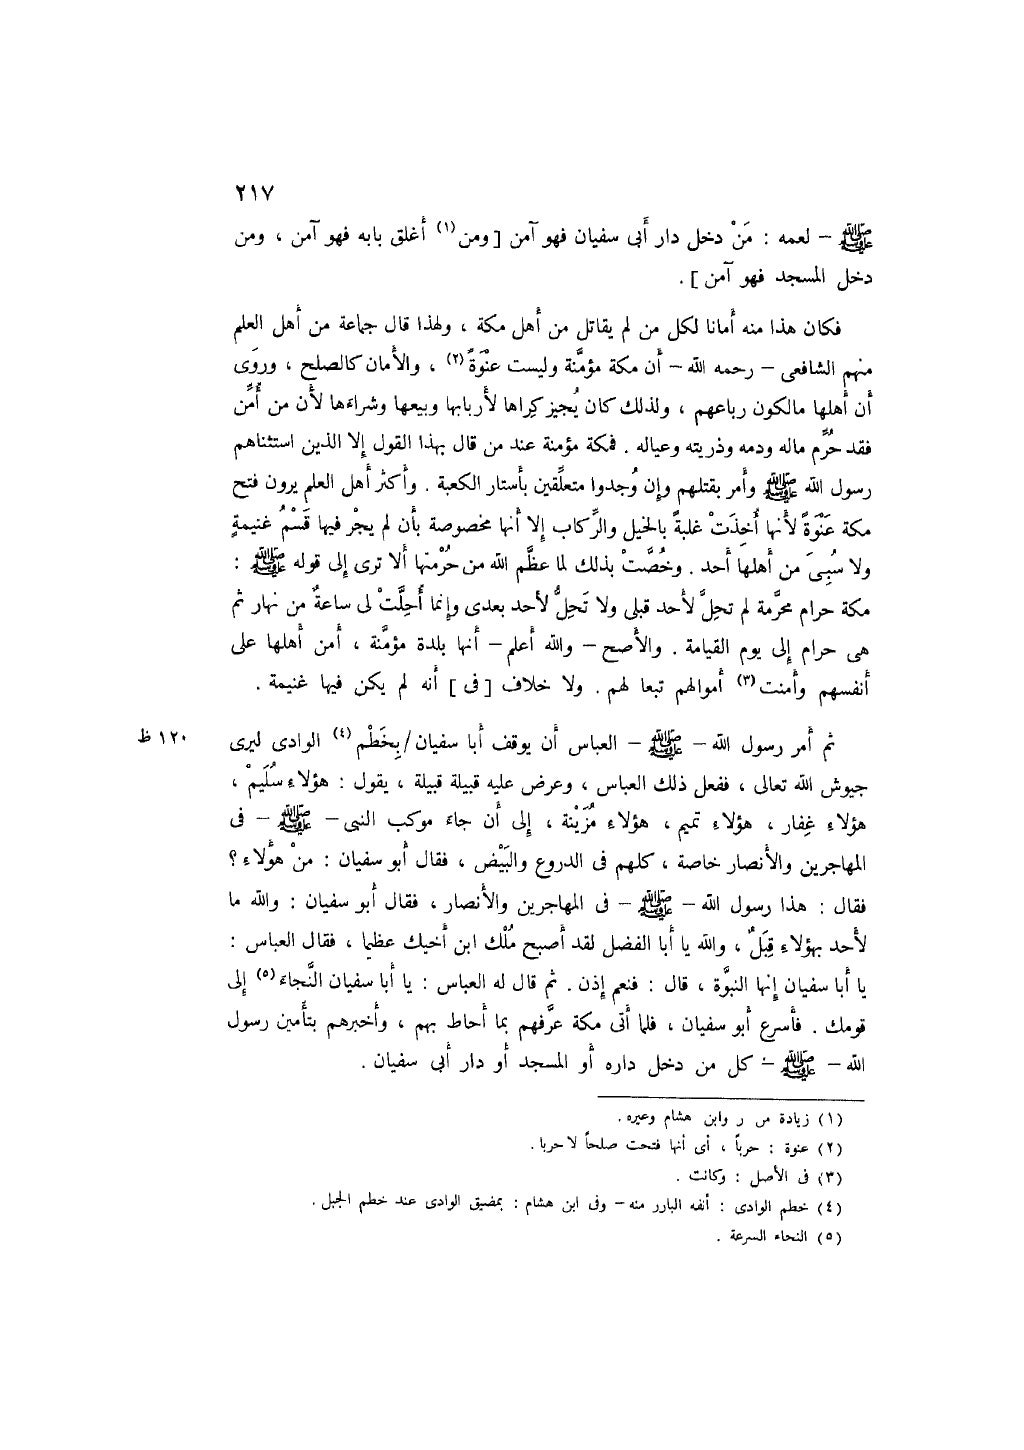 ٢١٧
ﷺ – لعمه : مَنْ دخل دار أبى سفيان فهو آمن [ ومن (١) أغلق بابه فهو آمن ، ومن
دخل المسجد فهو آمن ] .
فكان هذا منه أمانا لكل من لم يقاتل من أهل مكة ، ولهذا قال جماعة من أهل العلم
منهم الشافعى – رحمه الله – أن مكة مؤمَّنة وليست عنْوَةً (٢) ، والأمان كالصلح ، وروَى
أن أهلها مالكون رباعهم ، ولذلك كان يُجيز كِراها لأربابها وبيعها وشراءَها لأن من أُمِّن
فقد حُرِّم ماله ودمه وذريته وعياله . فمكة مؤمنة عند من قال بهذا القول إلا الذين استثناهم
رسول الله ﷺ وأمر بقتلهم وإن وُجدوا متعلِّقين بأستار الكعبة . وأكثر أهل العلم يرون فتح
مكة عَنْوَةً لأنها أُخِذَتْ غلبةً بالخيل والرِّكاب إلا أنها مخصوصة بأن لم يجْر فيها قَسْمُ غنيمةٍ
ولا سُبِىَ من أهلها أحد . وخُصَّتْ بذلك لما عظَّم الله من حُرْمتها ألا ترى إلى قوله ﷺ :
مكة حرام محرَّمة لم تحلِّ لأحد قبلى ولا تَحلُّ لأحد بعدى وإنما أُحِلَّتْ لى ساعةٌ من نهار ثم
هى حرام إلى يوم القيامة . والأصح – والله أعلم – أنها بلدة مؤمَّنة ، أمن أهلها على
أنفسهم وأمنت (٣) أموالهم تبعا لهم . ولا خلاف [ فى ] أنه لم يكن فيها غنيمة .
ثم أمر رسول الله – ﷺ – العباس أن يوقف أبا سفيان / بِخَطْم (٤) الوادى ليرى
١٢٠ ظ
جيوش الله تعالى ، ففعل ذلك العباس ، وعرض عليه قبيلة قبيلة ، يقول : هؤلاءِ سُلَيمْ ،
هؤلاءِ غِفار ، هؤلاءِ تميم ، هؤلاءِ مُزَيْنة ، إلى أن جاءَ موكب النبى – ﷺ – فى
المهاجرين والأنصار خاصة ، كلهم فى الدروع والبَيْض ، فقال أبو سفيان : منْ هؤلاءِ ؟
فقال : هذا رسول الله – ﷺ – فى المهاجرين والأنصار ، فقال أبو سفيان : والله ما
لأحد بهؤلاءِ قِبَلٌ ، والله يا أبا الفضل لقد أصبح مُلْك ابن أخيك عظيما ، فقال العباس :
يا أبا سفيان إنها النبوَّة ، قال : فنعم إذن . ثم قال له العباس : يا أبا سفيان النَّجاءَ (٥) إلى
قومك . فأسرع أبو سفيان ، فلما أتى مكة عرَّفهم بما أحاط بهم ، وأخبرهم بتأمين رسول
الله – ﷺ – كل من دخل داره أو المسجد أو دار أبى سفيان .
(١) زيادة من ر وابن هشام وغيره .
(٢) عنوة : حرباً ، أى أنها فتحت صلحاً لا حربا .
(٣) فى الأصل : وكانت .
(٤) خطم الوادى : أنفه البارز منه – وفى ابن هشام : بمضيق الوادى عند خطم الجبل .
(٥) النجاء السرعة .